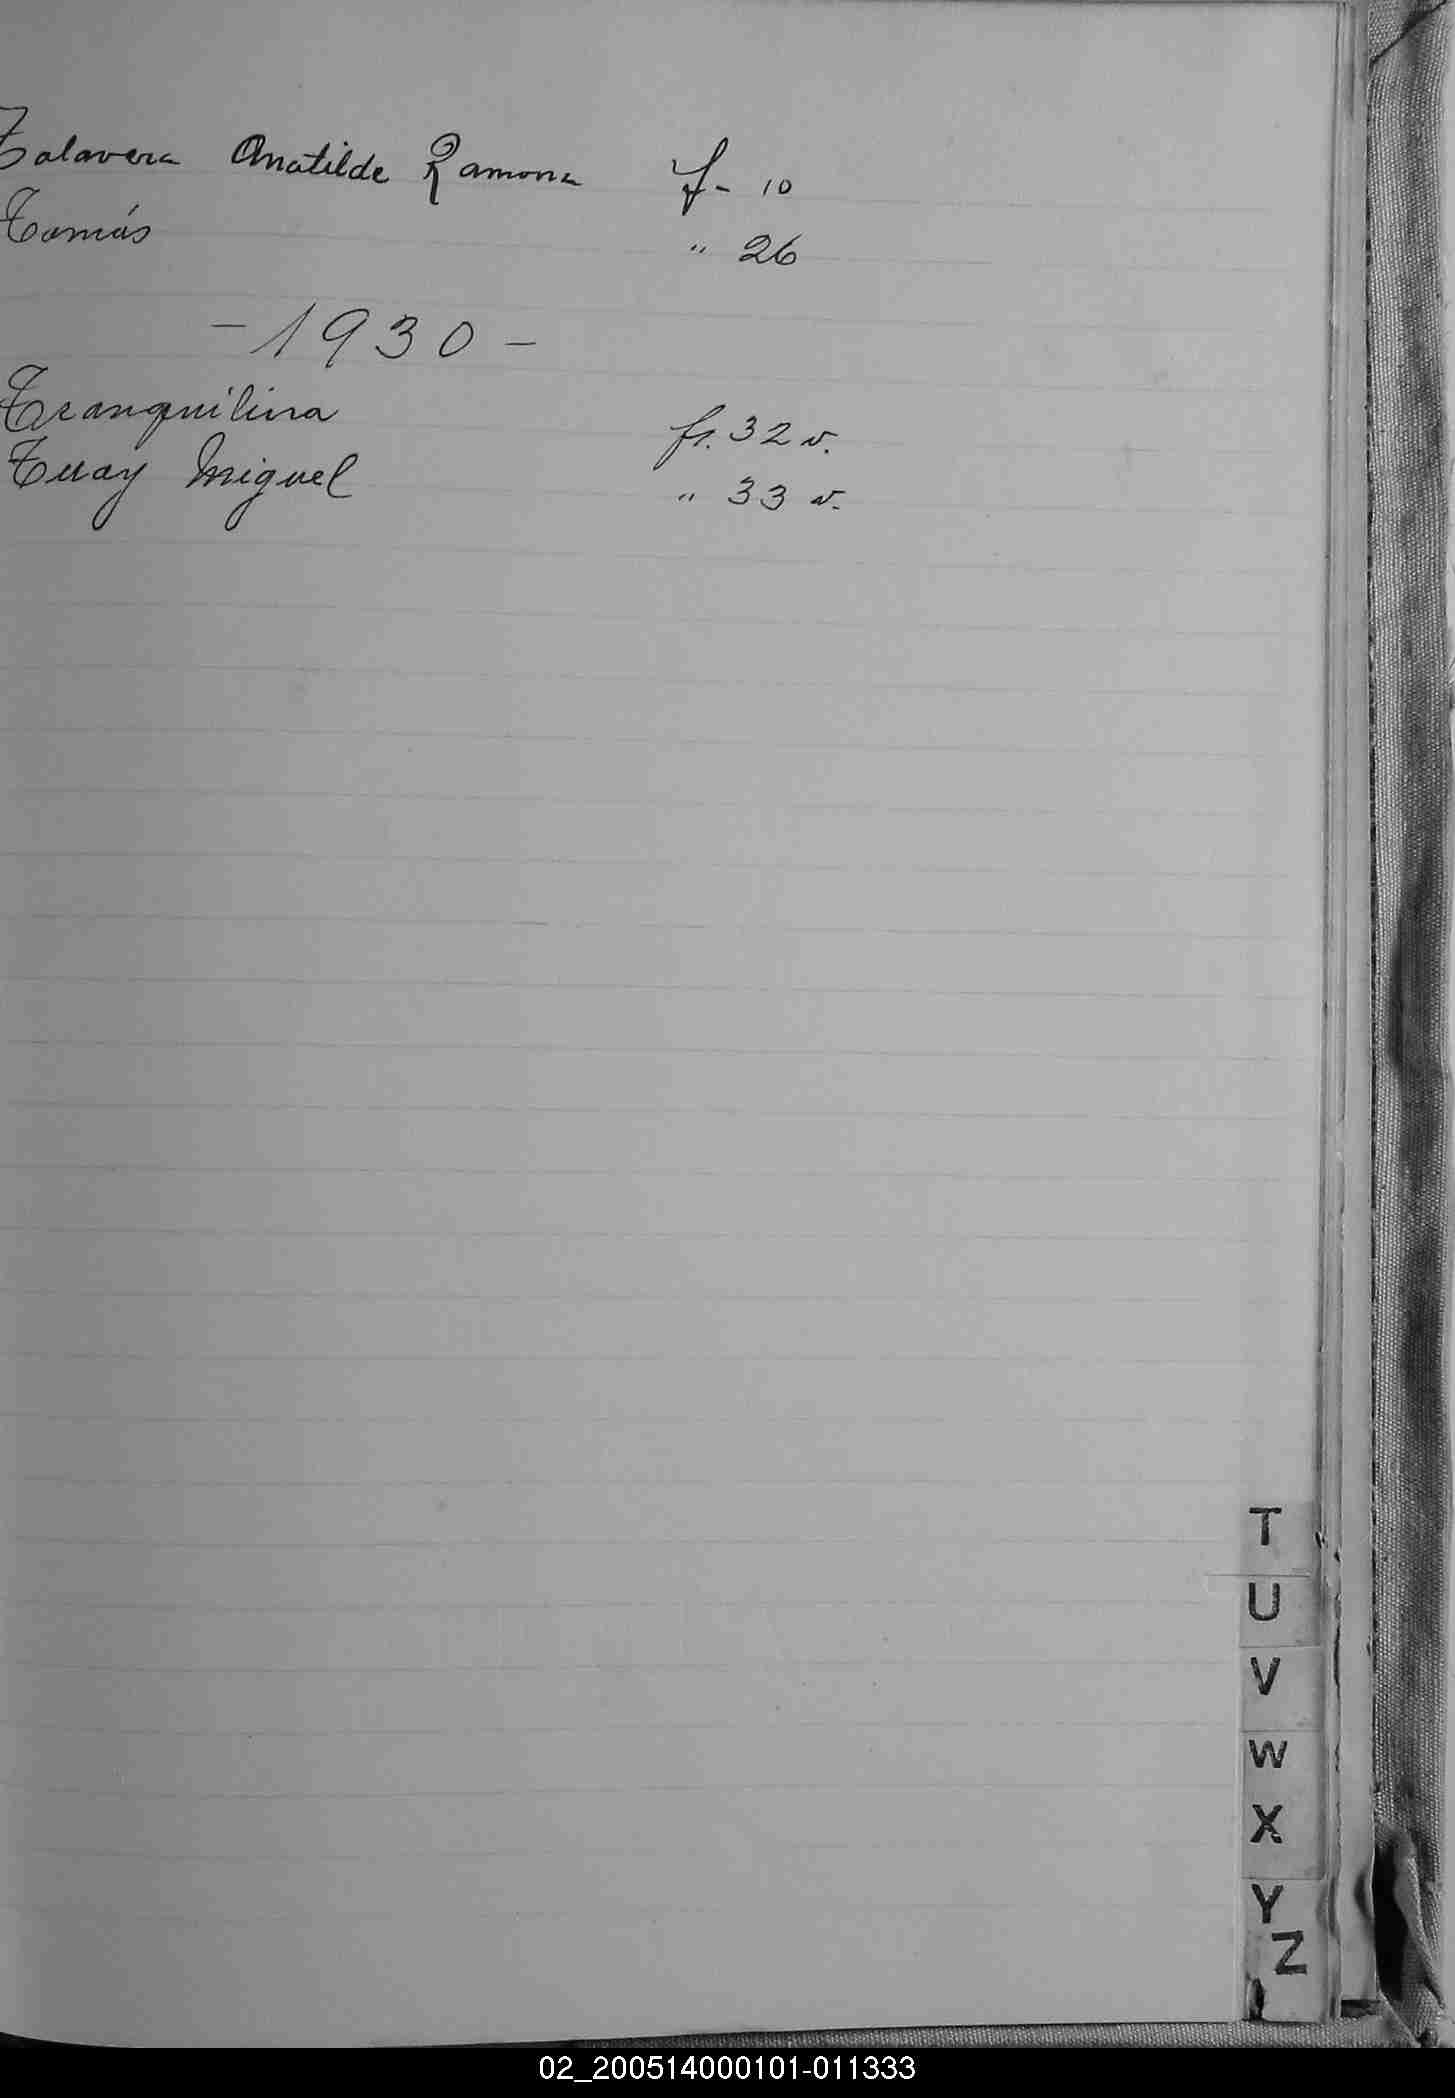 Talavera Matilde Ramona f- 10
Tomás " 26
- 1930 -
Tranquilina fs. 32 v.
Tuay Miguel " 33 v.
T
U
V
W
X
Y
Z
02_200514000101-011333